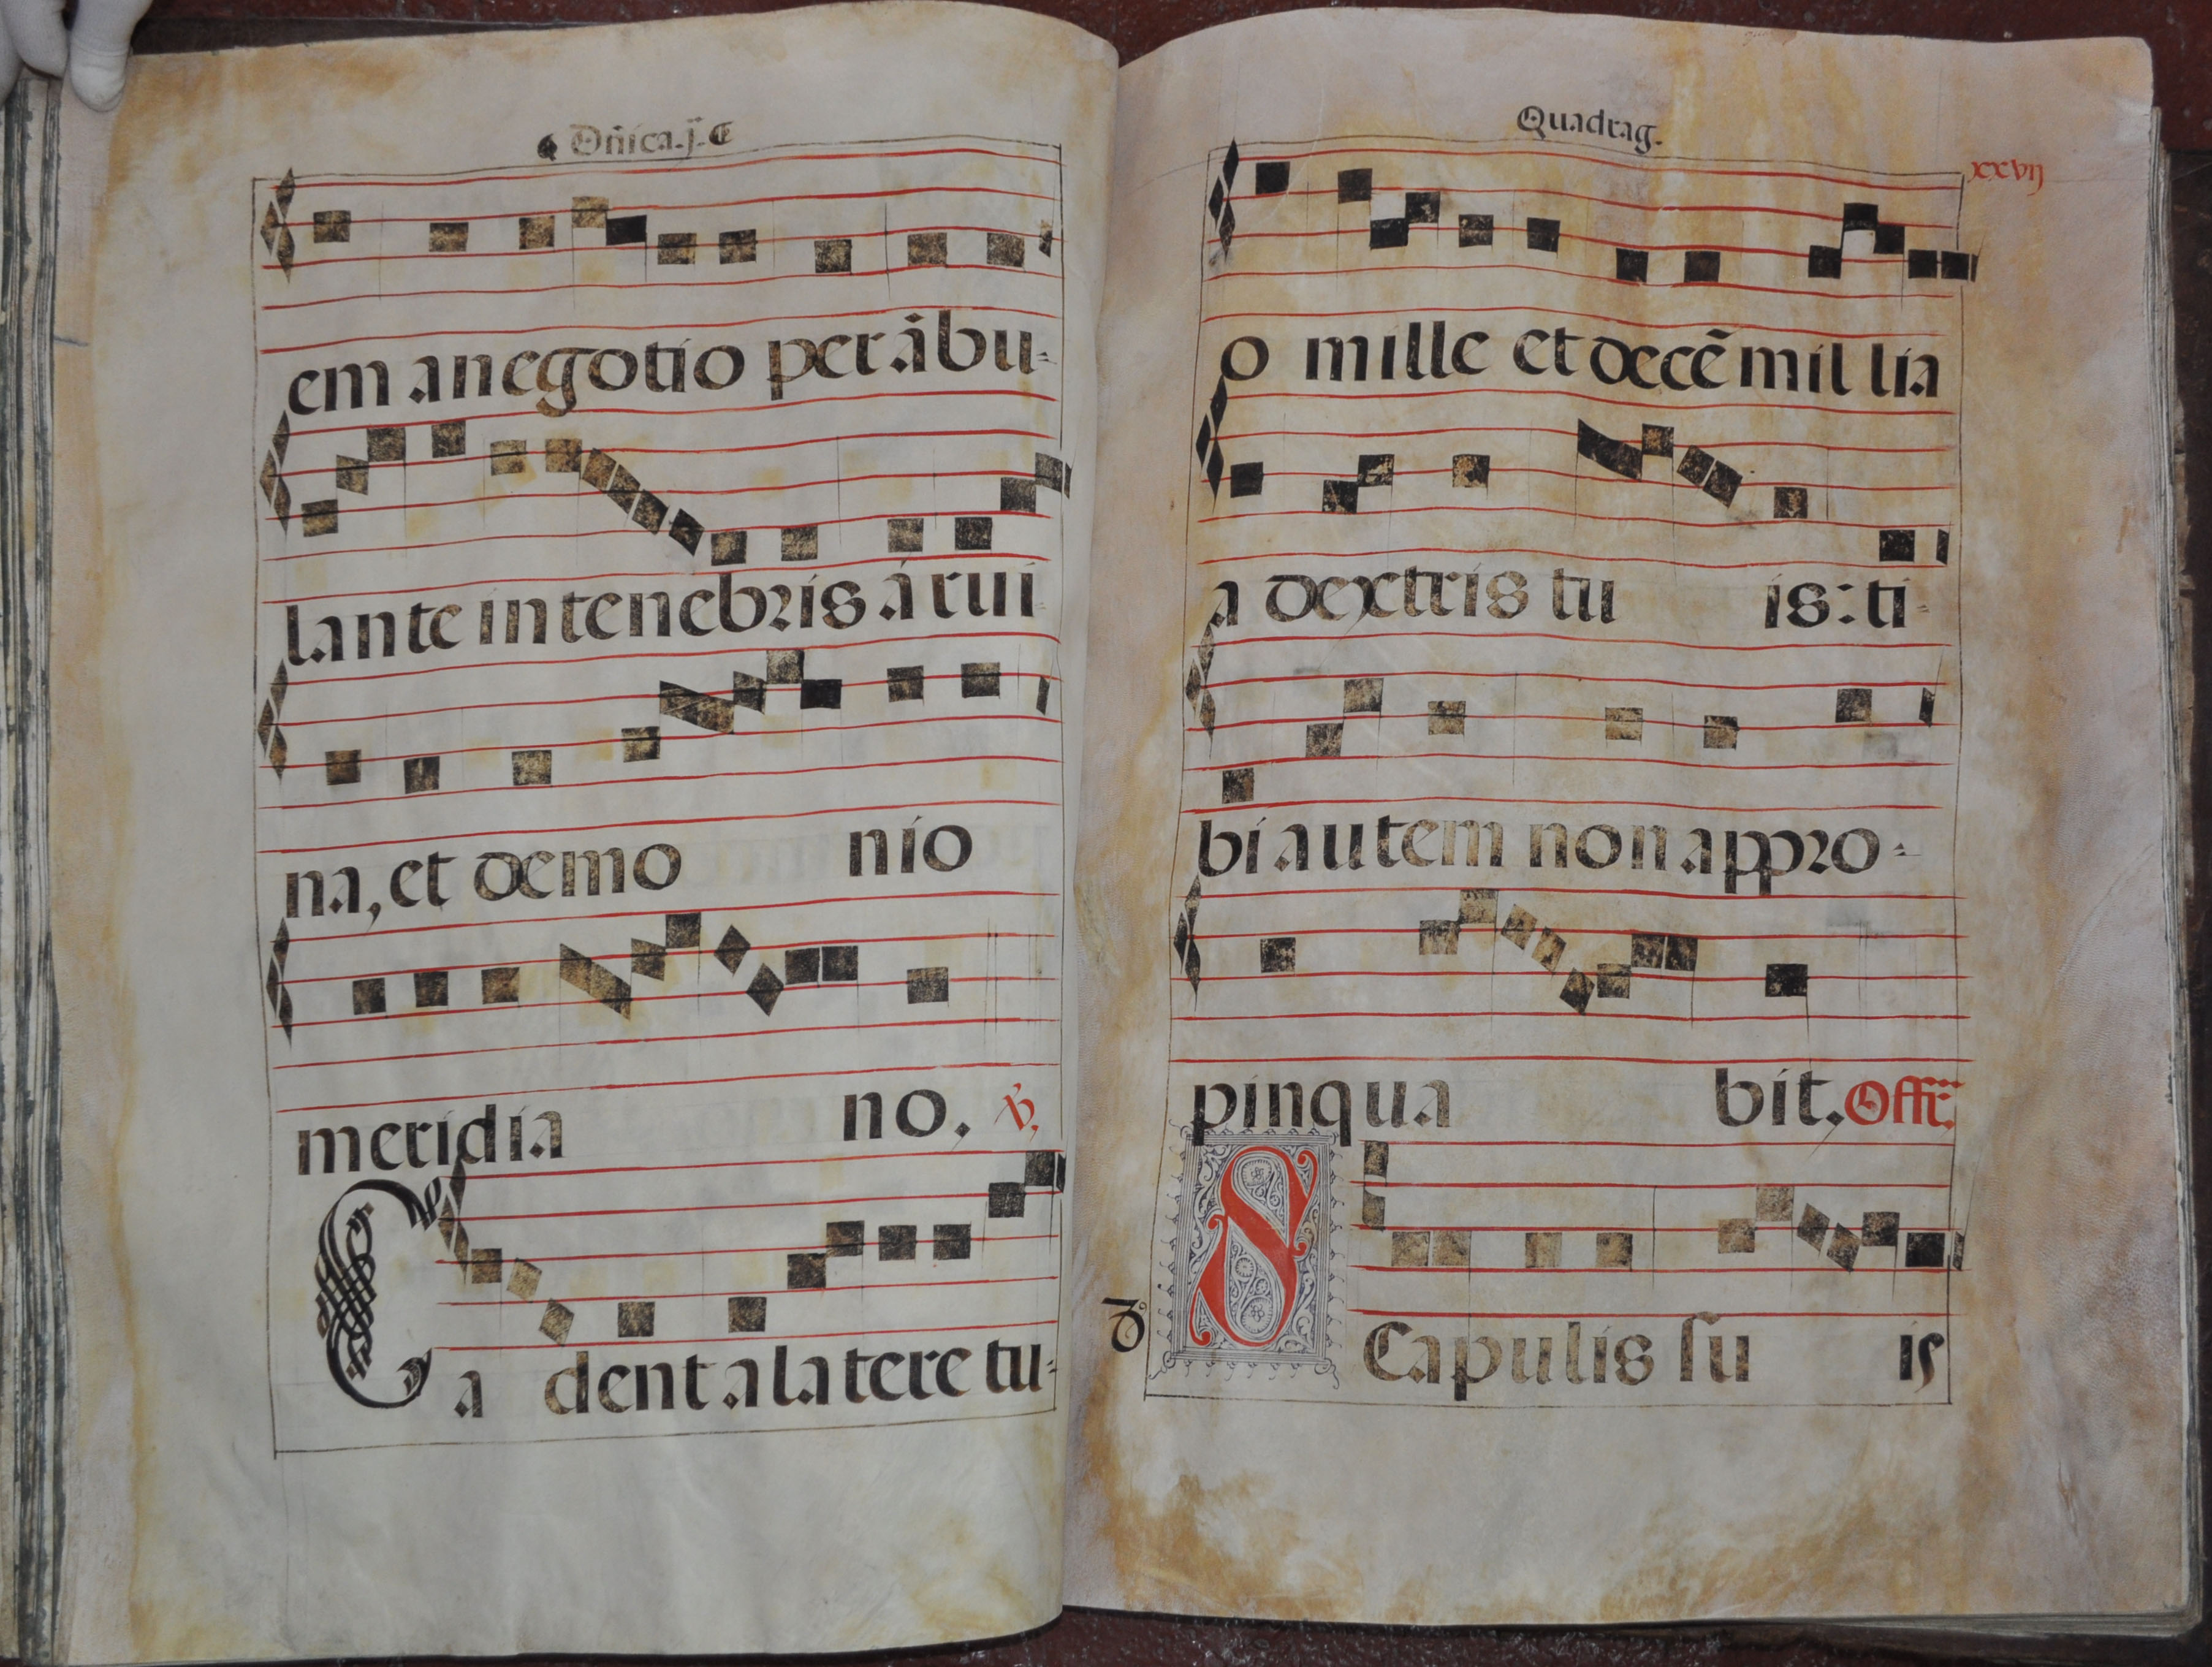 Dñica.j.
em a negotio perábu-
lante in tenebris á rui-
na, et demo nio
meridia no, ℣,
Ca dent a latere tu-
Quadrag.
xxvij
o mille et decẽ millia
a dextris tu is: ti-
bi autem non appro-
pinqua bit, Offr.
8.
SCapulis su is